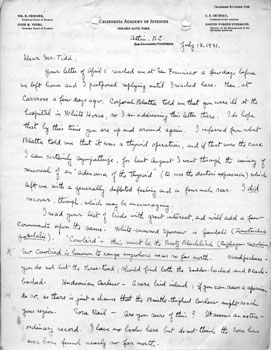 CALIFORNIA ACADEMY OF SCIENCES
GOLDEN GATE PARK
SAN FRANCISCO, CALIFORNIA
Atlin, B.C.
July 12, 1931.
Dear Mr. Tidd:
Your letter of April 1 reached me at San Francisco a few days before
we left home and I postponed replying until I reached here. Then, at
Carcross a few days ago, Corporal told me that you were ill at the
hospital in White Horse, so I am addressing this letter there. I do hope
that by this time you are up and around again. I inferred from what
told me that it was a thyroid operation, and if that were the case
I can certainly sympathize, for last August I went through the misery of
removal of an "adenoma of the thyroid" (to use the doctor's expression) which
left me with a generally defeated feeling and a four inch scar. I did
recover, though, which may be encouraging.
I read your list of birds with great interest, and will add a few
comments upon the same. White crowned Sparrow is Gambel's (Zonotrichia
gambelii). "Cowbird" - this must be the Rusty Blackbird (Euphagus
no Cowbird is known to range anywhere near so far north. Woodpeckers -
you do not list the Three-toed; should find both the Ladder-backed and Black-
backed. Hudsonian Curlew - a rare bird inland; if you can save a specimen
do so, as there is just a chance that the Bristle-thighed Curlew might reach
your region. Sora Rail - Are you sure of this? It seems an extra-
ordinary record. I have no books here but do not think the Sora has
ever been found nearly so far north.